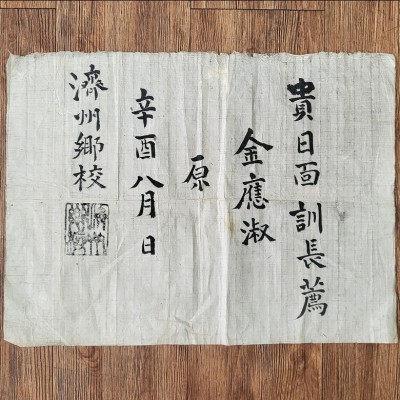 貴日面訓長薦
金應淑
原
辛酉八月日
濟州鄕校